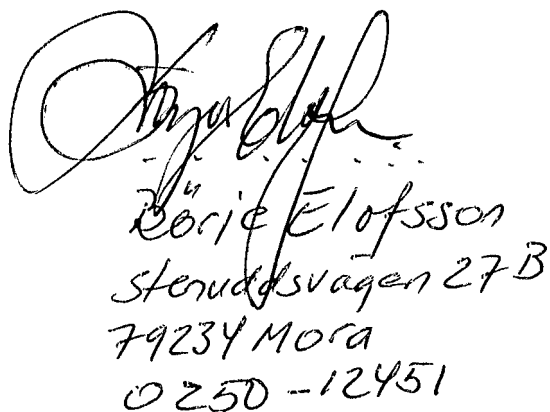 Börje Elofsson
Stenuddsvägen 27 B
79234 Mora
0250-12451